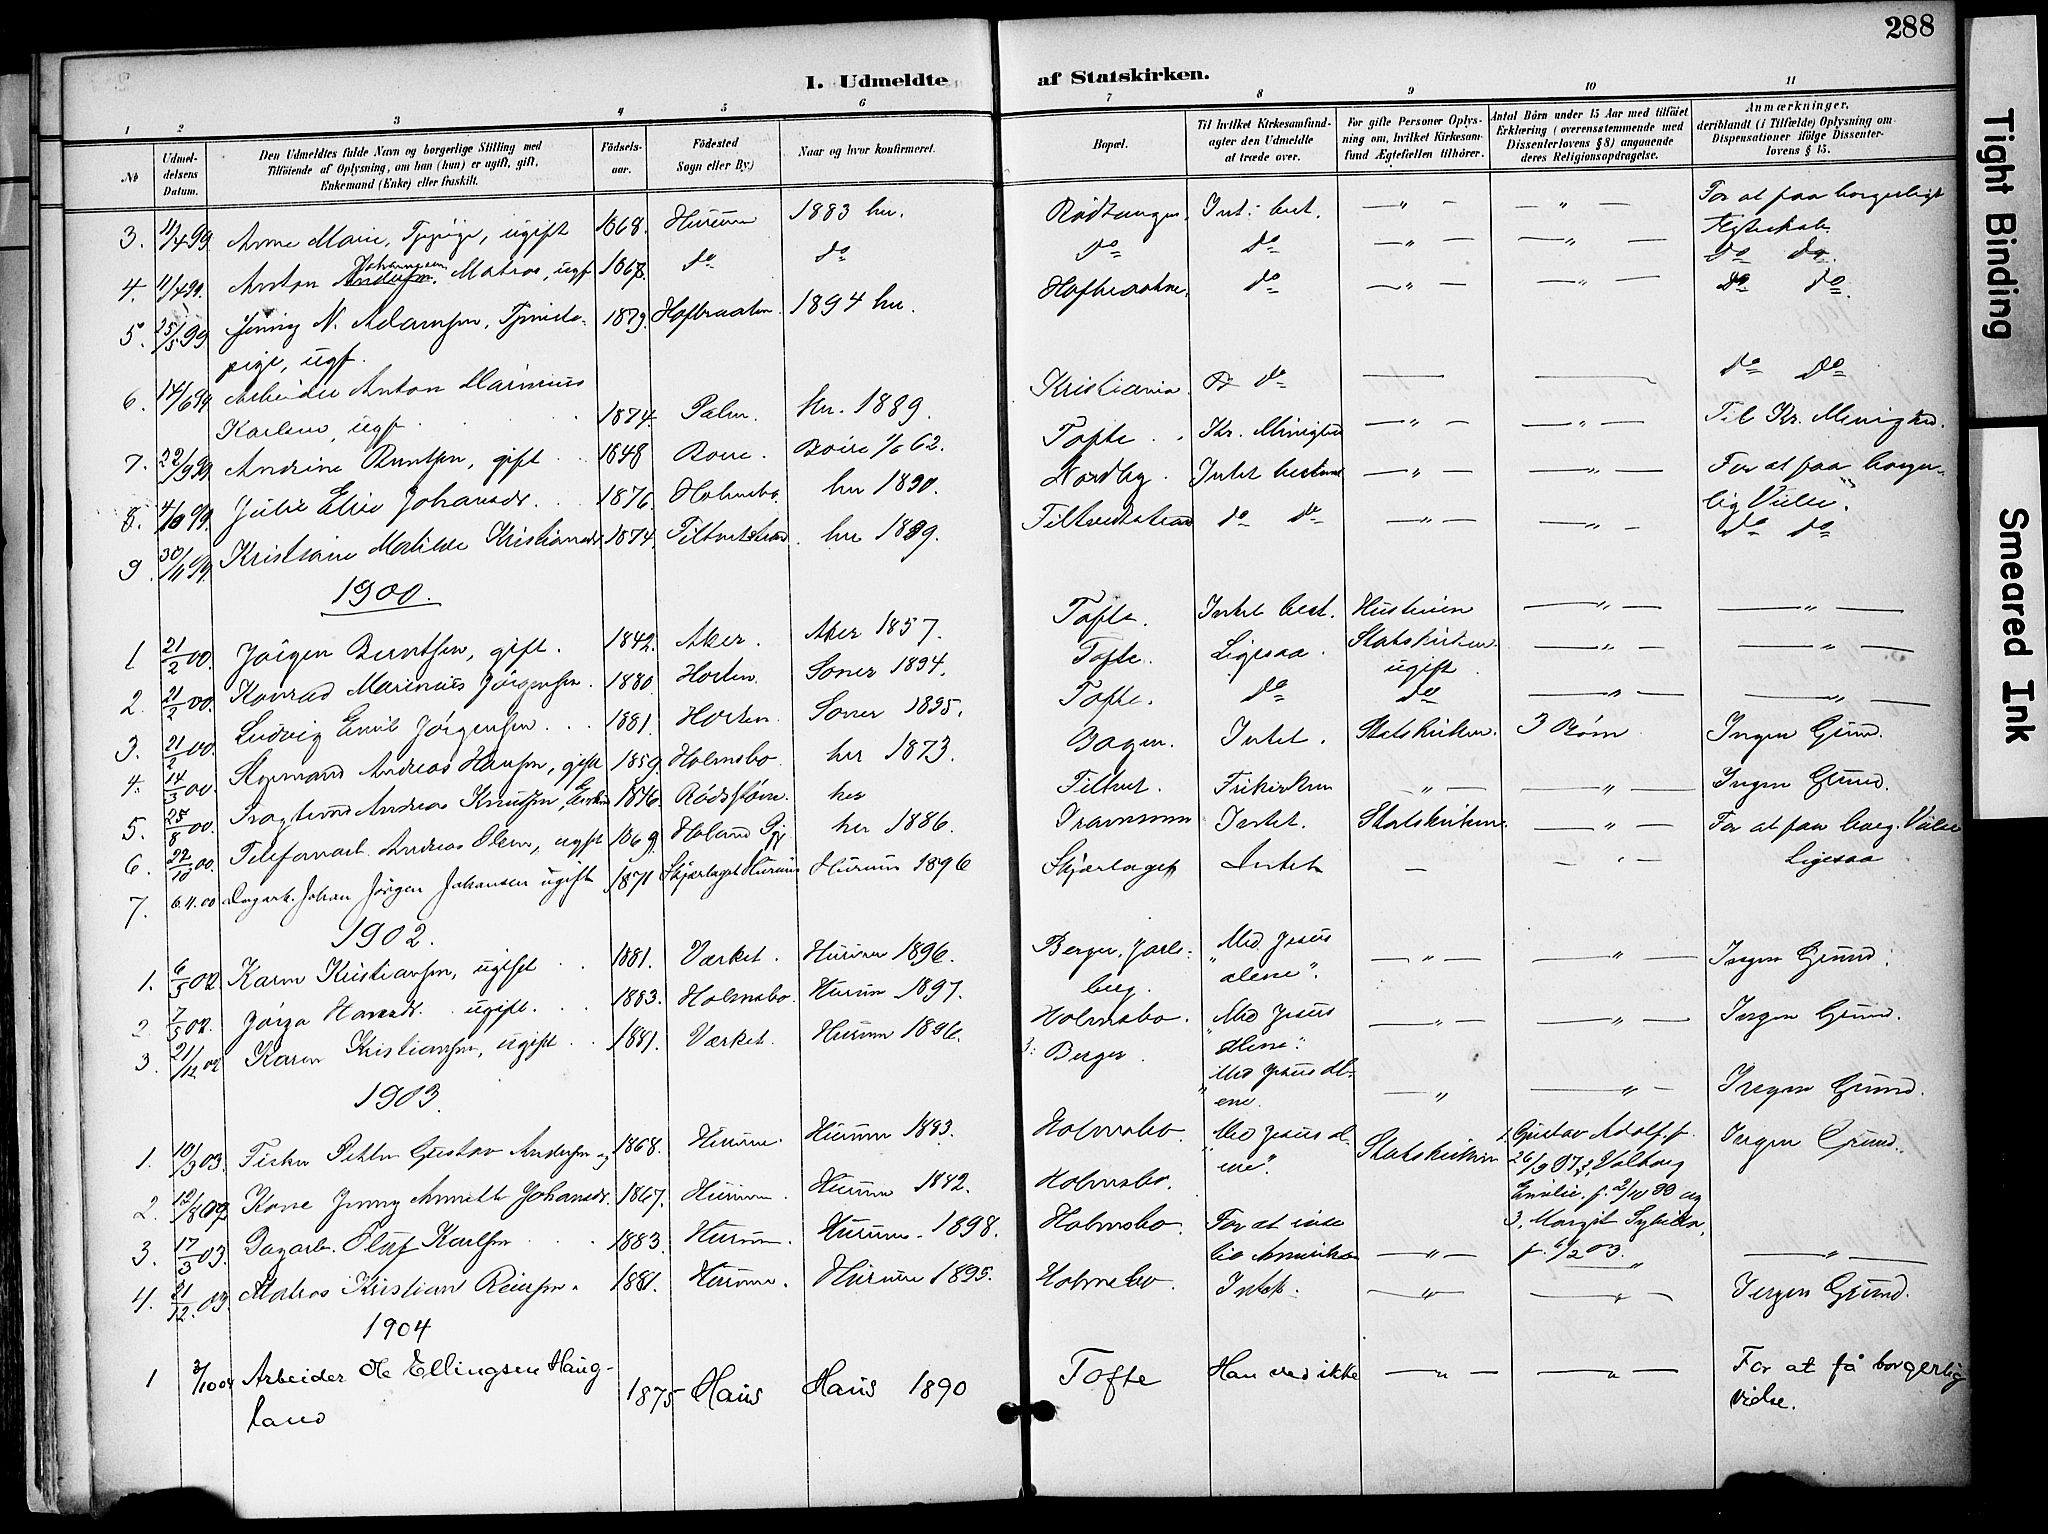 288
I. Udmeldte af Statskirken.
1 2 3 4 5 6 7 8 9 10 11
No
Udmeldelsens Datum.
Den Udmeldtes fulde Navn og borgerlige Stilling med Tilføiende af Oplysning, om han (hun) er ugift, gift, Enkemand (Enke) eller fraskilt.
Fødselsaar.
Fødested Sogn eller By.)
Naar og hvor konfirmeret.
Bopæl.
Til hvilket Kirkesamfund agter den Udmeldte at træde over.
For gifte Personer Oplysning om, hvilket Kirkesamfund Ægtefællen tilhører.
Antal Børn under 15 Aar med tilføiet Erklæring (overensstemmende med Dissenterlovens § 8) angaaende deres Religionsopdragelse.
Anmærkninger, deriblandt (i Tilfælde) Oplysning om Dispensationer ifølge Dissenterlovens § 15.
3. 11/4 99 Anne Marie, ugift 1868. Hurum 1883 her. Rødtangen. Int. best. — „ — — „ — For at faa borgerligt Ægteskab.
4. 11/4 99. Anton Johannesen Matros, ugf 1867. do do do do — „ — — „ — do do
5. 25/5 99 Jenny N. Adamsen, Tjenestepige, ugf. 1879. 1894 her. do — „ — — „ — do do
6. 14/6 99 Arbeider Anton Marinius Karlsen, ugf. 1874 her. 1889. Kristiania do — — do do
7. 22/9 99 Andrine Berntsen, gift 1848 62. Tofte Kr. Menighed — „ — — „ — Til Kr. Menighed.
8. 4/10 99. Julie Elise Johansdr. 1876. Holmsbo. her 1890. Nordby. Intet bestemt — „ — — „ — For at faa borgerlig Vielse.
9. 30/11 99. Kristiane Matilde Kristiansdr 1874. her 1889. do do — „ — — „ — do do
1900.
1 21/2 00. Jørgen Berntsen, gift. 1842. Aker. Aker 1857. Tofte. Intet best. Hustruen Statskirken — „ — — „ —
2. 21/2 00. Konrad Marinius Jørgensen. 1880. Horten. Soner 1894. Tofte. Ligesaa. ugift — „ — — „ —
3. 21/2 00. Ludvig Emil Jørgensen. 1881. Horten. Soner 1895. Tofte. do do — „ — — „ —
4. 14/3 00. Styrmand Andreas Hansen, gift 1859. Holmsbo. her 1873. Intet. Statskirken. 3 Børn Ingen Grund.
5. 25/8 00. Andreas Knutsen, 1846. her Filtvet. Frikirken — „ — — „ — Ingen Grund.
6. 22/10 00. Telefonarb. Andreas Olsen, ugift 1869. her 1886. Intet. Statskirken. — „ — For at faa borg. Vielse
7. 6.11.00 Dagarb. Johan Jørgen Johansen ugift 1871 Skjærlaget Hurum Hurum 1896 Skjærlaget Intet — — „ — Ligesaa
1902.
1. 6/5 02. Karen Kristiansen, ugift 1881. Værket. Hurum 1896. Berger, Jarlsberg. Med Jesus „alene". — „ — — „ — Ingen Grund.
2 7/5 02. Hansdr. ugift. 1883. Holmsbo. Hurum 1897. Holmsbo. Med Jesus „alene". — „ — — „ — Ingen Grund.
3. 21/12 02 Karen Kristiansen, ugift 1881. Værket. Hurum 1896. Berger. Med Jesus „alene. — „ — — „ — Ingen Grund.
1903.
1. 10/3 03. Fisker Gustav Andersen og 1868. Hurum. Hurum 1883. Holmsbo. Med Jesus al„ene". Statskirken 1. Gustav Adolf, f. 26/9 97, 2. Valborg Emilie, f. og 3. Margit f. 6/2 03. Ingen Grund.
2. Kone Jenny Annette Johansdr. 1867. Hurum. Hurum 1882. Holmsbo.
3. 17/3 03. Dagarb. Oluf Karlsen 1883. Hurum. Hurum. 1898. Holmsbo. For at reise til Amerika — „ — „ — „ —
4. 21/12 03. Matros Kristian 1881. Hurum. Hurum 1895. Holmsbo. Intet. — „ — — „ — Ingen Grund.
1904
1 3/10 04 Arbeider Ole Ellingsen Haugland 1875 Haus Haus 1890 Tofte Han ved ikke — „ — — „ — For at få borgerlig vielse.
Tight Binding
Smeared Ink